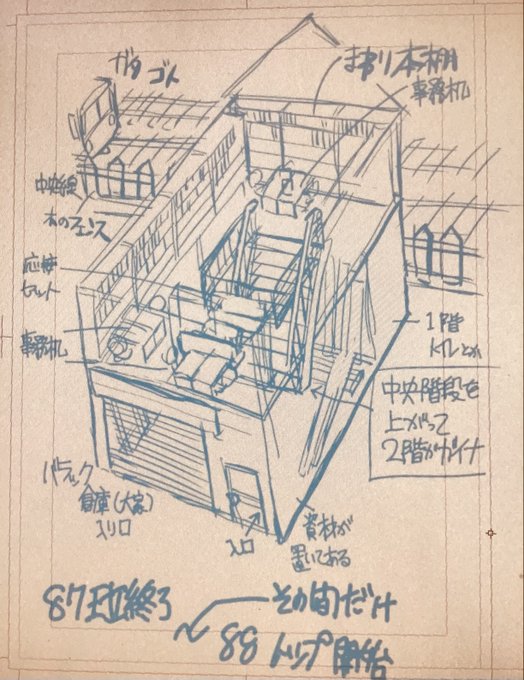 ガタ
ゴト
まわり本棚
事務机
中央線
木のフェンス
応接
セット
事務机
1階
トイレとか
中央階段を
上がって
2階がガイナ
バラック
倉庫(大家)
入り口
入口
資材が
置いてある
87 終了
その間だけ
88 トップ開始